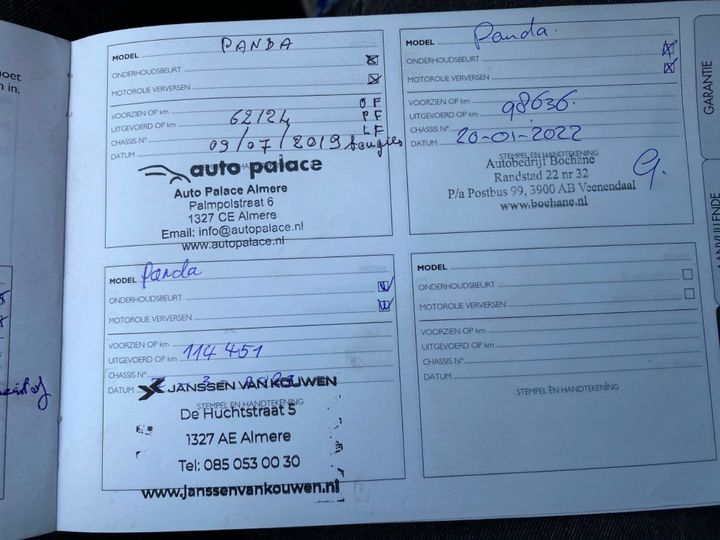 MODEL PANDA
ONDERHOUDSBEURT
MOTOROLIE VERVERSEN
OF
VOORZIEN OP km
PF
UITGEVOERD OP km 62124
LF
CHASSIS N°
bougies
DATUM 09/07/2019
STEMPEL EN HANDTEKENING
auto palace
Auto Palace Almere
Palmpolstraat 6
1327 CE Almere
Email: info@autopalace.nl
www.autopalace.nl
MODEL Panda
ONDERHOUDSBEURT
MOTOROLIE VERVERSEN
VOORZIEN OP km
UITGEVOERD OP km 98636
CHASSIS N°
DATUM 20-01-2022
STEMPEL EN HANDTEKENING
Autobedrijf Bochane
Randstad 22 nr 32
P/a Postbus 99, 3900 AB Veenendaal
www.bochane.nl
MODEL Panda
ONDERHOUDSBEURT
MOTOROLIE VERVERSEN
VOORZIEN OP km
UITGEVOERD OP km 114451
CHASSIS N°
DATUM
STEMPEL EN HANDTEKENING
JANSSEN VAN KOUWEN
De Huchtstraat 5
1327 AE Almere
Tel: 085 053 00 30
www.janssenvankouwen.nl
MODEL
ONDERHOUDSBEURT
MOTOROLIE VERVERSEN
VOORZIEN OP km
UITGEVOERD OP km
CHASSIS N°
DATUM
STEMPEL EN HANDTEKENING
GARANTIE